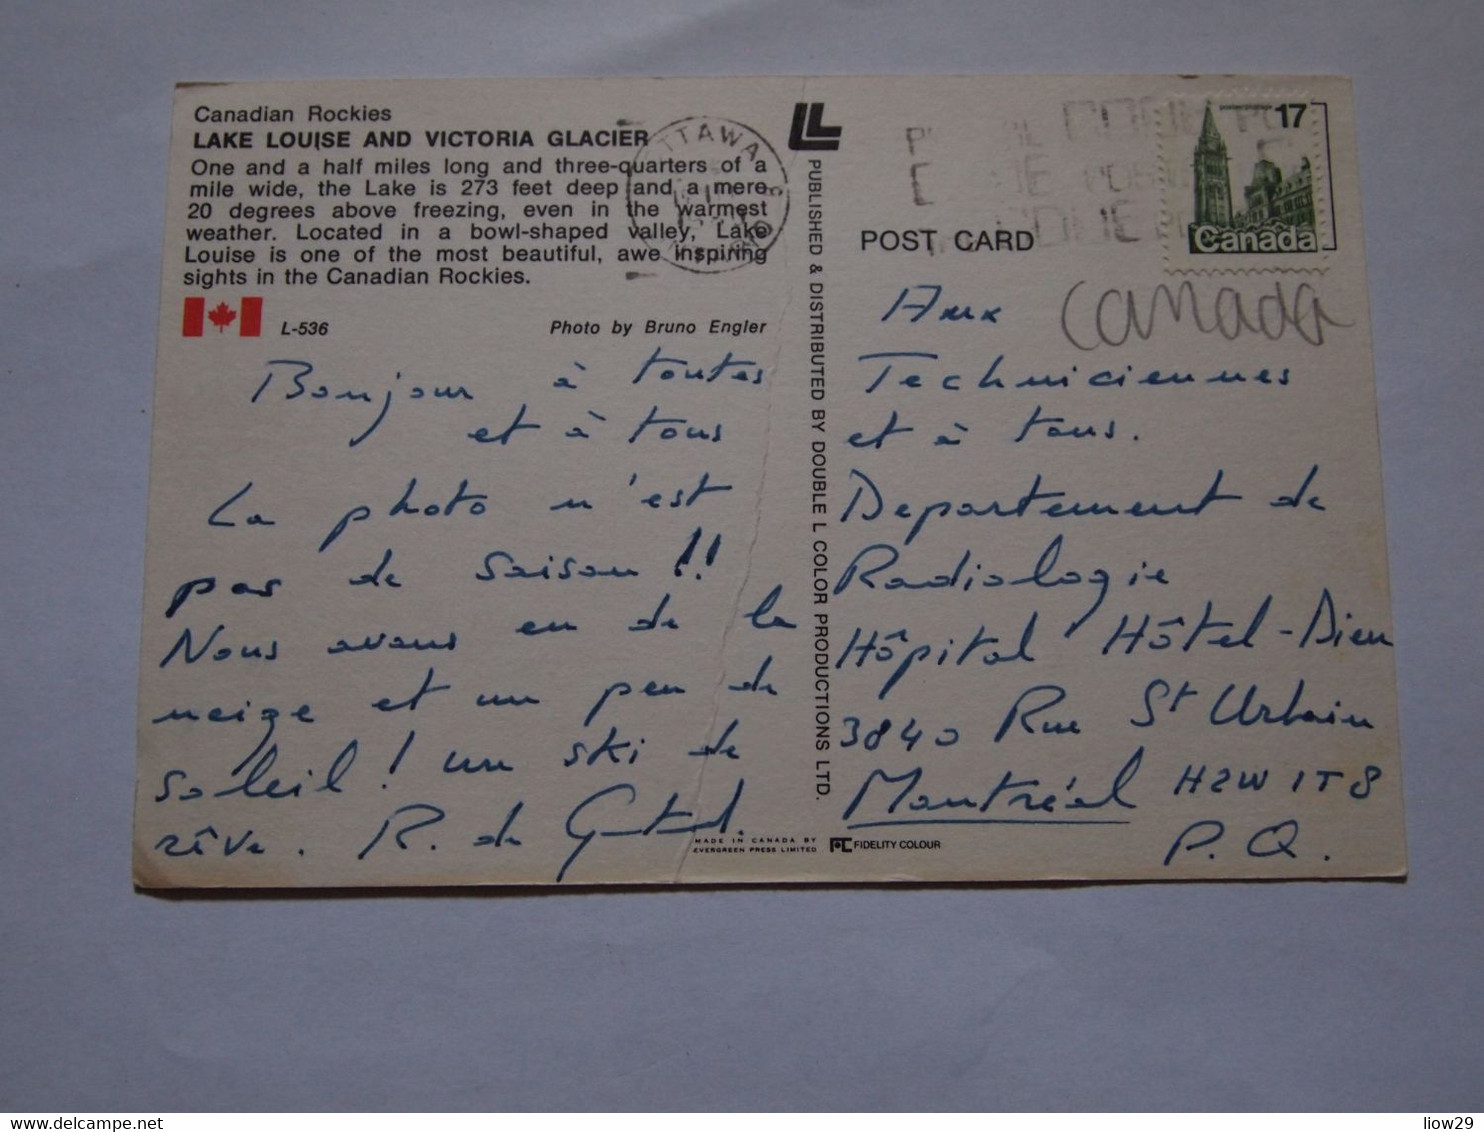 Canadian Rockies
LAKE LOUISE AND VICTORIA GLACIER
One and a half miles long and three-quarters of a
mile wide, the Lake is 273 feet deep and a mere
20 degrees above freezing, even in the warmest
weather. Located in a bowl-shaped valley, Lake
Louise is one of the most beautiful, awe inspiring
sights in the Canadian Rockies.
L-536
Photo by Bruno Engler
Bonjour à toutes
et à tous
La photo n'est
pas de saison !!
Nous avons eu de la
neige et un peu de
soleil ! un ski de
rêve. R. de
PUBLISHED & DISTRIBUTED BY DOUBLE L COLOR PRODUCTIONS LTD.
MADE IN CANADA BY
EVERGREEN PRESS LIMITED
FIDELITY COLOUR
POST CARD
17
Canada
TTAWA
Canada
Aux
Techniciennes
et à tous.
Departement de
Radiologie
Hôpital Hôtel-Dieu
3840 Rue St Urbain
Montréal H2W 1T8
P.Q.
delcampe.net
liow29